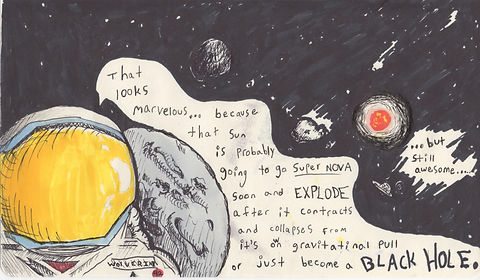 That
looks
marvelous... because
that sun
is probably
going to go Super NOVA
soon and EXPLODE
after it contracts
and collapses from
it's own gravitational pull
or just become a BLACK HOLE.
...but
still
awesome....
WOLVERINE